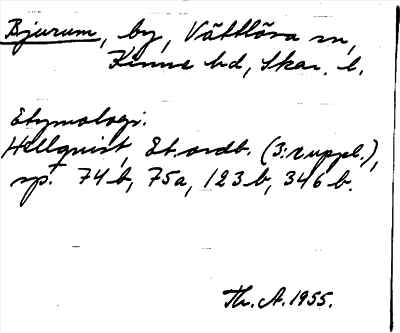 Bjurum, by, Vättlösa sn,
Kinne hd, Skar. l.
Etymologi.
Hellquist, Et. ordb. (3: suppl.),
sp. 74b, 75a, 123b, 346b.
Th. A. 1955.